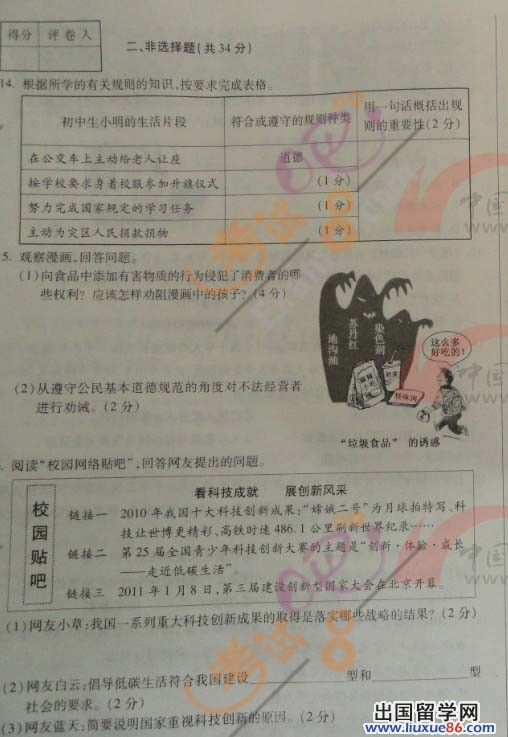 得分 评卷人
二、非选择题(共34分)
14. 根据所学的有关规则的知识,按要求完成表格。
初中生小明的生活片段 符合或遵守的规则种类 用一句话概括出规则的重要性(2分)
在公交车上主动给老人让座 道德
按学校要求身着校服参加升旗仪式 (1分)
努力完成国家规定的学习任务 (1分)
主动为灾区人民捐款捐物 (1分)
5. 观察漫画,回答问题。
(1)向食品中添加有害物质的行为侵犯了消费者的哪
些权利?应该怎样劝阻漫画中的孩子?(4分)
地沟油
苏丹红
染色剂
这么多
好吃的!
(2)从遵守公民基本道德规范的角度对不法经营者
进行劝诫。(2分)
“垃圾食品”的诱惑
. 阅读“校园网络贴吧”,回答网友提出的问题。
校园贴吧
看科技成就 展创新风采
链接一 2010年我国十大科技创新成果:“嫦娥二号”为月球拍特写、科
技让世博更精彩、高铁时速486.1公里刷新世界纪录……
链接二 第25届全国青少年科技创新大赛的主题是“创新·体验·成长
——走近低碳生活”。
链接三 2011年1月8日,第三届建设创新型国家大会在北京开幕。
(1)网友小草:我国一系列重大科技创新成果的取得是落实哪些战略的结果?(2分)
(2)网友白云:倡导低碳生活符合我国建设__________型和__________型
社会的要求。(2分)
(3)网友蓝天:简要说明国家重视科技创新的原因。(2分)
考试吧
中国
出国留学网
www.liuxue86.com